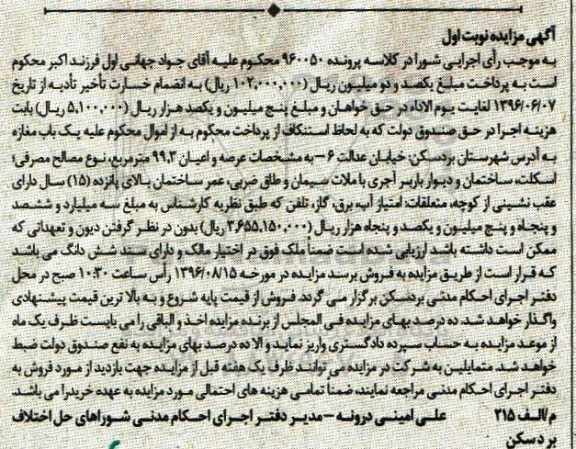 آگهی مزایده نوبت اول
به موجب رأی اجرایی شورا در کلاسه پرونده ۹۶۰۰۵۰ محکوم علیه آقای جواد جهانی اول فرزند اکبر محکوم
است به پرداخت مبلغ یکصد و دو میلیون ریال (۱۰۲,۰۰۰,۰۰۰ ریال) به انضمام خسارت تأخیر تأدیه از تاریخ
۱۳۹۶/۰۶/۰۷ لغایت یوم الاداه در حق خواهان و مبلغ پنج میلیون و یکصد هزار ریال (۵,۱۰۰,۰۰۰ ریال) بابت
هزینه اجرا در حق صندوق دولت که به لحاظ استنکاف از پرداخت محکوم به از اموال محکوم علیه یک باب مغازه
به آدرس شهرستان بردسکن: خیابان عدالت ۶ – به مشخصات عرصه و اعیان ۹۹,۳ مترمربع، نوع مصالح مصرفی؛
اسکلت، ساختمان و دیوار باربر آجری با ملات سیمان و طاق ضربی، عمر ساختمان بالای پانزده (۱۵) سال دارای
عقب نشینی از کوچه، متعلقات: امتیاز آب، برق، گاز، تلفن که طبق نظریه کارشناس به مبلغ سه میلیارد و ششصد
و پنجاه و پنج میلیون و یکصد و پنجاه هزار ریال (۳,۶۵۵,۱۵۰,۰۰۰ ریال) بدون در نظر گرفتن دیون و تعهداتی که
ممکن است داشته باشد ارزیابی شده است ضمناً ملک فوق در اختیار مالک و دارای سند شش دانگ می باشد
که قرار است از طریق مزایده به فروش برسد مزایده در مورخه ۱۳۹۶/۰۸/۱۵ رأس ساعت ۱۰:۳۰ صبح در محل
دفتر اجرای احکام مدنی بردسکن برگزار می گردد. فروش از قیمت پایه شروع و به بالا ترین قیمت پیشنهادی
واگذار خواهد شد. ده درصد بهای مزایده فی المجلس از برنده مزایده اخذ و الباقی را می بایست ظرف یک ماه
از موعد مزایده به حساب سپرده دادگستری واریز نماید و الا ده درصد بهای مزایده به نفع صندوق دولت ضبط
خواهد شد. متمایلین به شرکت در مزایده می توانند ظرف یک هفته قبل از مزایده جهت بازدید از مورد فروش به
دفتر اجرای احکام مدنی مراجعه نمایند، ضمناً تمامی هزینه های احتمالی مورد مزایده به عهده خریدرا می باشد.
م/الف ۲۱۵ علی امینی درونه – مدیر دفتر اجرای احکام مدنی شوراهای حل اختلاف
بردسکن